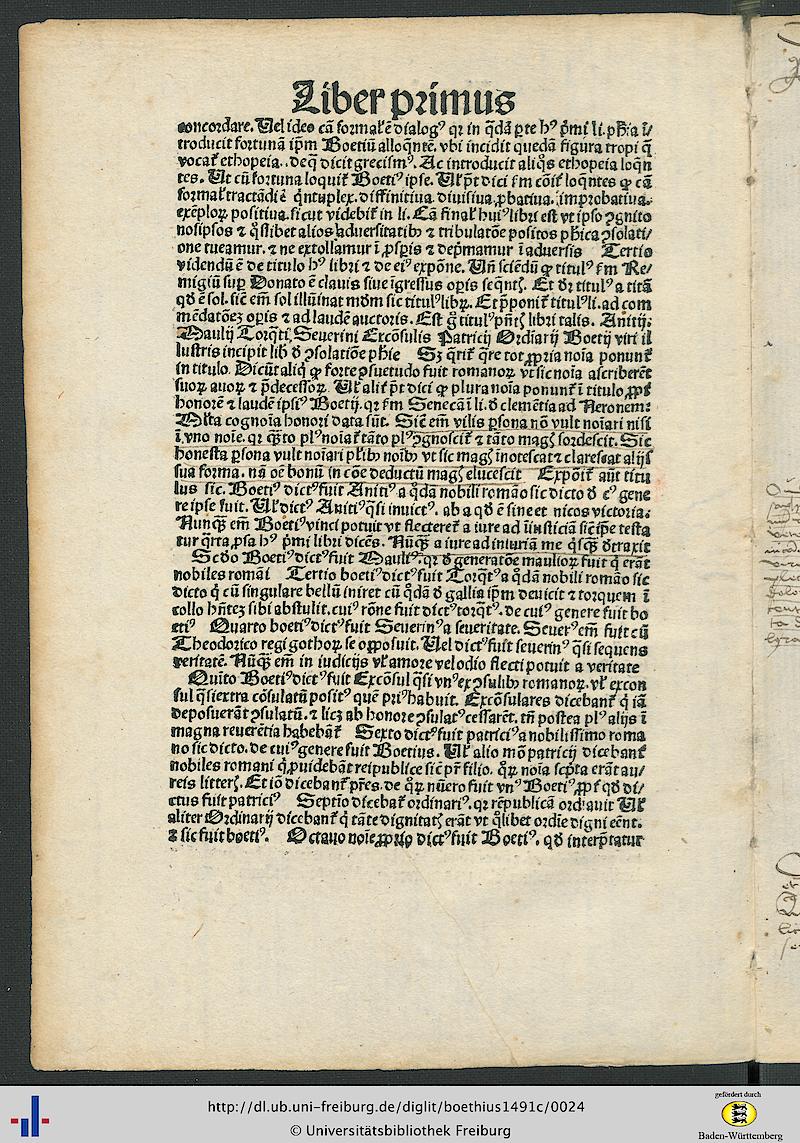 Liber primus
concordare. Uel ideo cā formał ē dialogꝰ qꝛ in q̄dā ꝑte hꝰ p̄mi li. ph̄ia ī/
troducit fortunā ip̄m Boetiū alloq̄ntē. vbi incidit quedā figura tropi q̄
vocat̉ ethopeia. de q̄ dicit grecismꝰ. Ac introducit aliq̄s ethopeia loq̄n
tes. Ut cū fortuna loquit̉ Boetiꝰ ipse. Uł p̄t dici ẜm cōit̉ loq̄ntes ꝙ cā
formał tractādi ē q̄ntuplex. diffinitiua diuisiua ꝓbatiua. improbatiua.
exēploꝝ positiua. sicut videbit̉ in li. Cā finał huiꝰ libri est vt ipso ꝯgnito
nosipsos ⁊ q̄slibet alios aduersitatibꝰ ⁊ tribulatōe positos ph̄ica ꝯsolati/
one tueamur. ⁊ ne extollamur ī ꝓsꝑis ⁊ dep̄mamur ī aduersis Tertio
videndū ē de titulo hꝰ libri ⁊ de eiꝰ expōne. Un̄ sciēdū ꝙ titulꝰ ẜm Re/
migiū suꝑ Donato ē clauis siue īgressus oꝑis seq̄ntꝭ. Et dꝛ titulꝰ a titā
qd̄ ē sol. sic̄ em̄ sol illūinat mūdm sic titulꝰ libꝝ. Et p̄ponit̉ titulꝰ li. ad com
mēdatōeꝫ oꝑis ⁊ ad laudē auctoris. Est g̊ titulꝰ pn̄tꝭ libri talis. Anitij.
Maulij Torq̄ti. Seuerini Excōsulis Patricij Ordiarij Boetij viri il
lustris incipit lib̄ d̄ ꝯsolatiōe ph̄ie Sꝫ q̄rit̉ q̄re tot ꝓpria noīa ponunt̉
in titulo. Dicūt aliq̄ ꝙ forte ꝯsuetudo fuit romanoꝝ vt sic noīa ascriberēt
suoꝝ auoꝝ ⁊ p̄decessoꝝ. Uł alit̉ p̄t dici ꝙ plura noīa ponunt̉ ī titulo ꝓpt̉
honorē ⁊ laudē ipsiꝰ Boetij. qꝛ ẜm Senecā ī li. d̄ clemētia ad Neronem:
Mlta cognoīa honori data sūt. Sic̄ em̄ vilis ꝑsona nō vult noīari nisi
ī vno noīe. qꝛ q̄ꝫto plꝰ noīat̉ tāto plꝰ ꝯgnoscit̉ ⁊ tāto magꝭ sordescit. Sic
honesta ꝑsona vult noīari pl̄ibꝰ noībꝰ vt sic magꝭ īnotescat ⁊ clarescat alijs
sua forma. nā oē bonū in cōe deductū magꝭ elucescit Expōit̉ aūt titu
lus sic. Boetiꝰ dictꝰ fuit Anitiꝰ a q̄dā nobili romāo sic dicto d̄ cꝰ gene
re ipse fuit. Uł dictꝰ Anitꝰ q̄si inuictꝰ. ab a qd̄ ē sine et nicos victoria.
Nunq̄ꝫ em̄ Boetiꝰ vinci potuit vt flecteret̉ a iure ad īiusticiā sic̄ ip̄e testa
tur q̄rta ꝓsa hꝰ p̄mi libri dicēs. Nūq̄ꝫ a iure ad iniuriā me q̄sq̄ꝫ d̄traxit
Sc̄do Boetiꝰ dictꝰ fuit Mauliꝰ. qꝛ d̄ generatōe maulioꝝ fuit q̄ erāt
nobiles romāi Tertio boetiꝰ dictꝰ fuit Torq̄tꝰ a q̄dā nobili romāo sic
dicto q̄ cū singulare bellū iniret cū q̄dā d̄ gallia ip̄m deuicit ⁊ torquem ī
collo hn̄tez sibi abstulit. cuiꝰ rōne fuit dictꝰ torq̄tꝰ. de cuiꝰ genere fuit bo
etiꝰ Quarto boetiꝰ dictꝰ fuit Seuerinꝰ a seueritate. Seuerꝰ em̄ fuit cū
Theodorico regi gothoꝝ se opposuit. Uel dictꝰ fuit seuerinꝰ q̄si sequens
veritatē. Nūq̄ꝫ em̄ in iudicijs vł amore vel odio flecti potuit a veritate
Quīto Boetiꝰ dictꝰ fuit Excōsul q̄si vnꝰ ex ꝯsulibꝰ romanoꝝ. vł excon
sul q̄si extra cōsulatū positꝰ quē priꝰ habuit. Excōsulares dicebant̉ q̄ iā
deposuerāt ꝯsulatū. ⁊ licꝫ ab honore ꝯsulatꝰ cessarēt. tn̄ postea plꝰ alijs ī
magna reuerētia habebāt̉ Sexto dictꝰ fuit patriciꝰ a nobilissimo roma
no sic dicto. de cuiꝰ genere fuit Boetius. Uł alio mō patricij dicebant̉
nobiles romani q̄ ꝓuidebāt reipublice sic̄ pr̄ filio. q̄ꝝ noīa sc̄pta erāt au/
reis litterꝭ. Et iō dicebant̉ pr̄es. de q̄ꝝ nūero fuit vnꝰ Boetiꝰ ꝓpt̉ qd̄ di/
ctus fuit patriciꝰ Septīo dicebat̉ ordinariꝰ. qꝛ rēpublicā ordiauit Uł
aliter Ordinarij dicebant̉ q̄ tāte dignitatꝭ erāt vt q̄libet ordīe digni eēnt.
⁊ sic fuit boetiꝰ. Octauo noīe ꝓprio dictꝰ fuit Boetiꝰ. qd̄ interp̄tatur
http://dl.ub.uni-freiburg.de/diglit/boethius1491c/0024
© Universitätsbibliothek Freiburg
gefördert durch
Baden-Württemberg